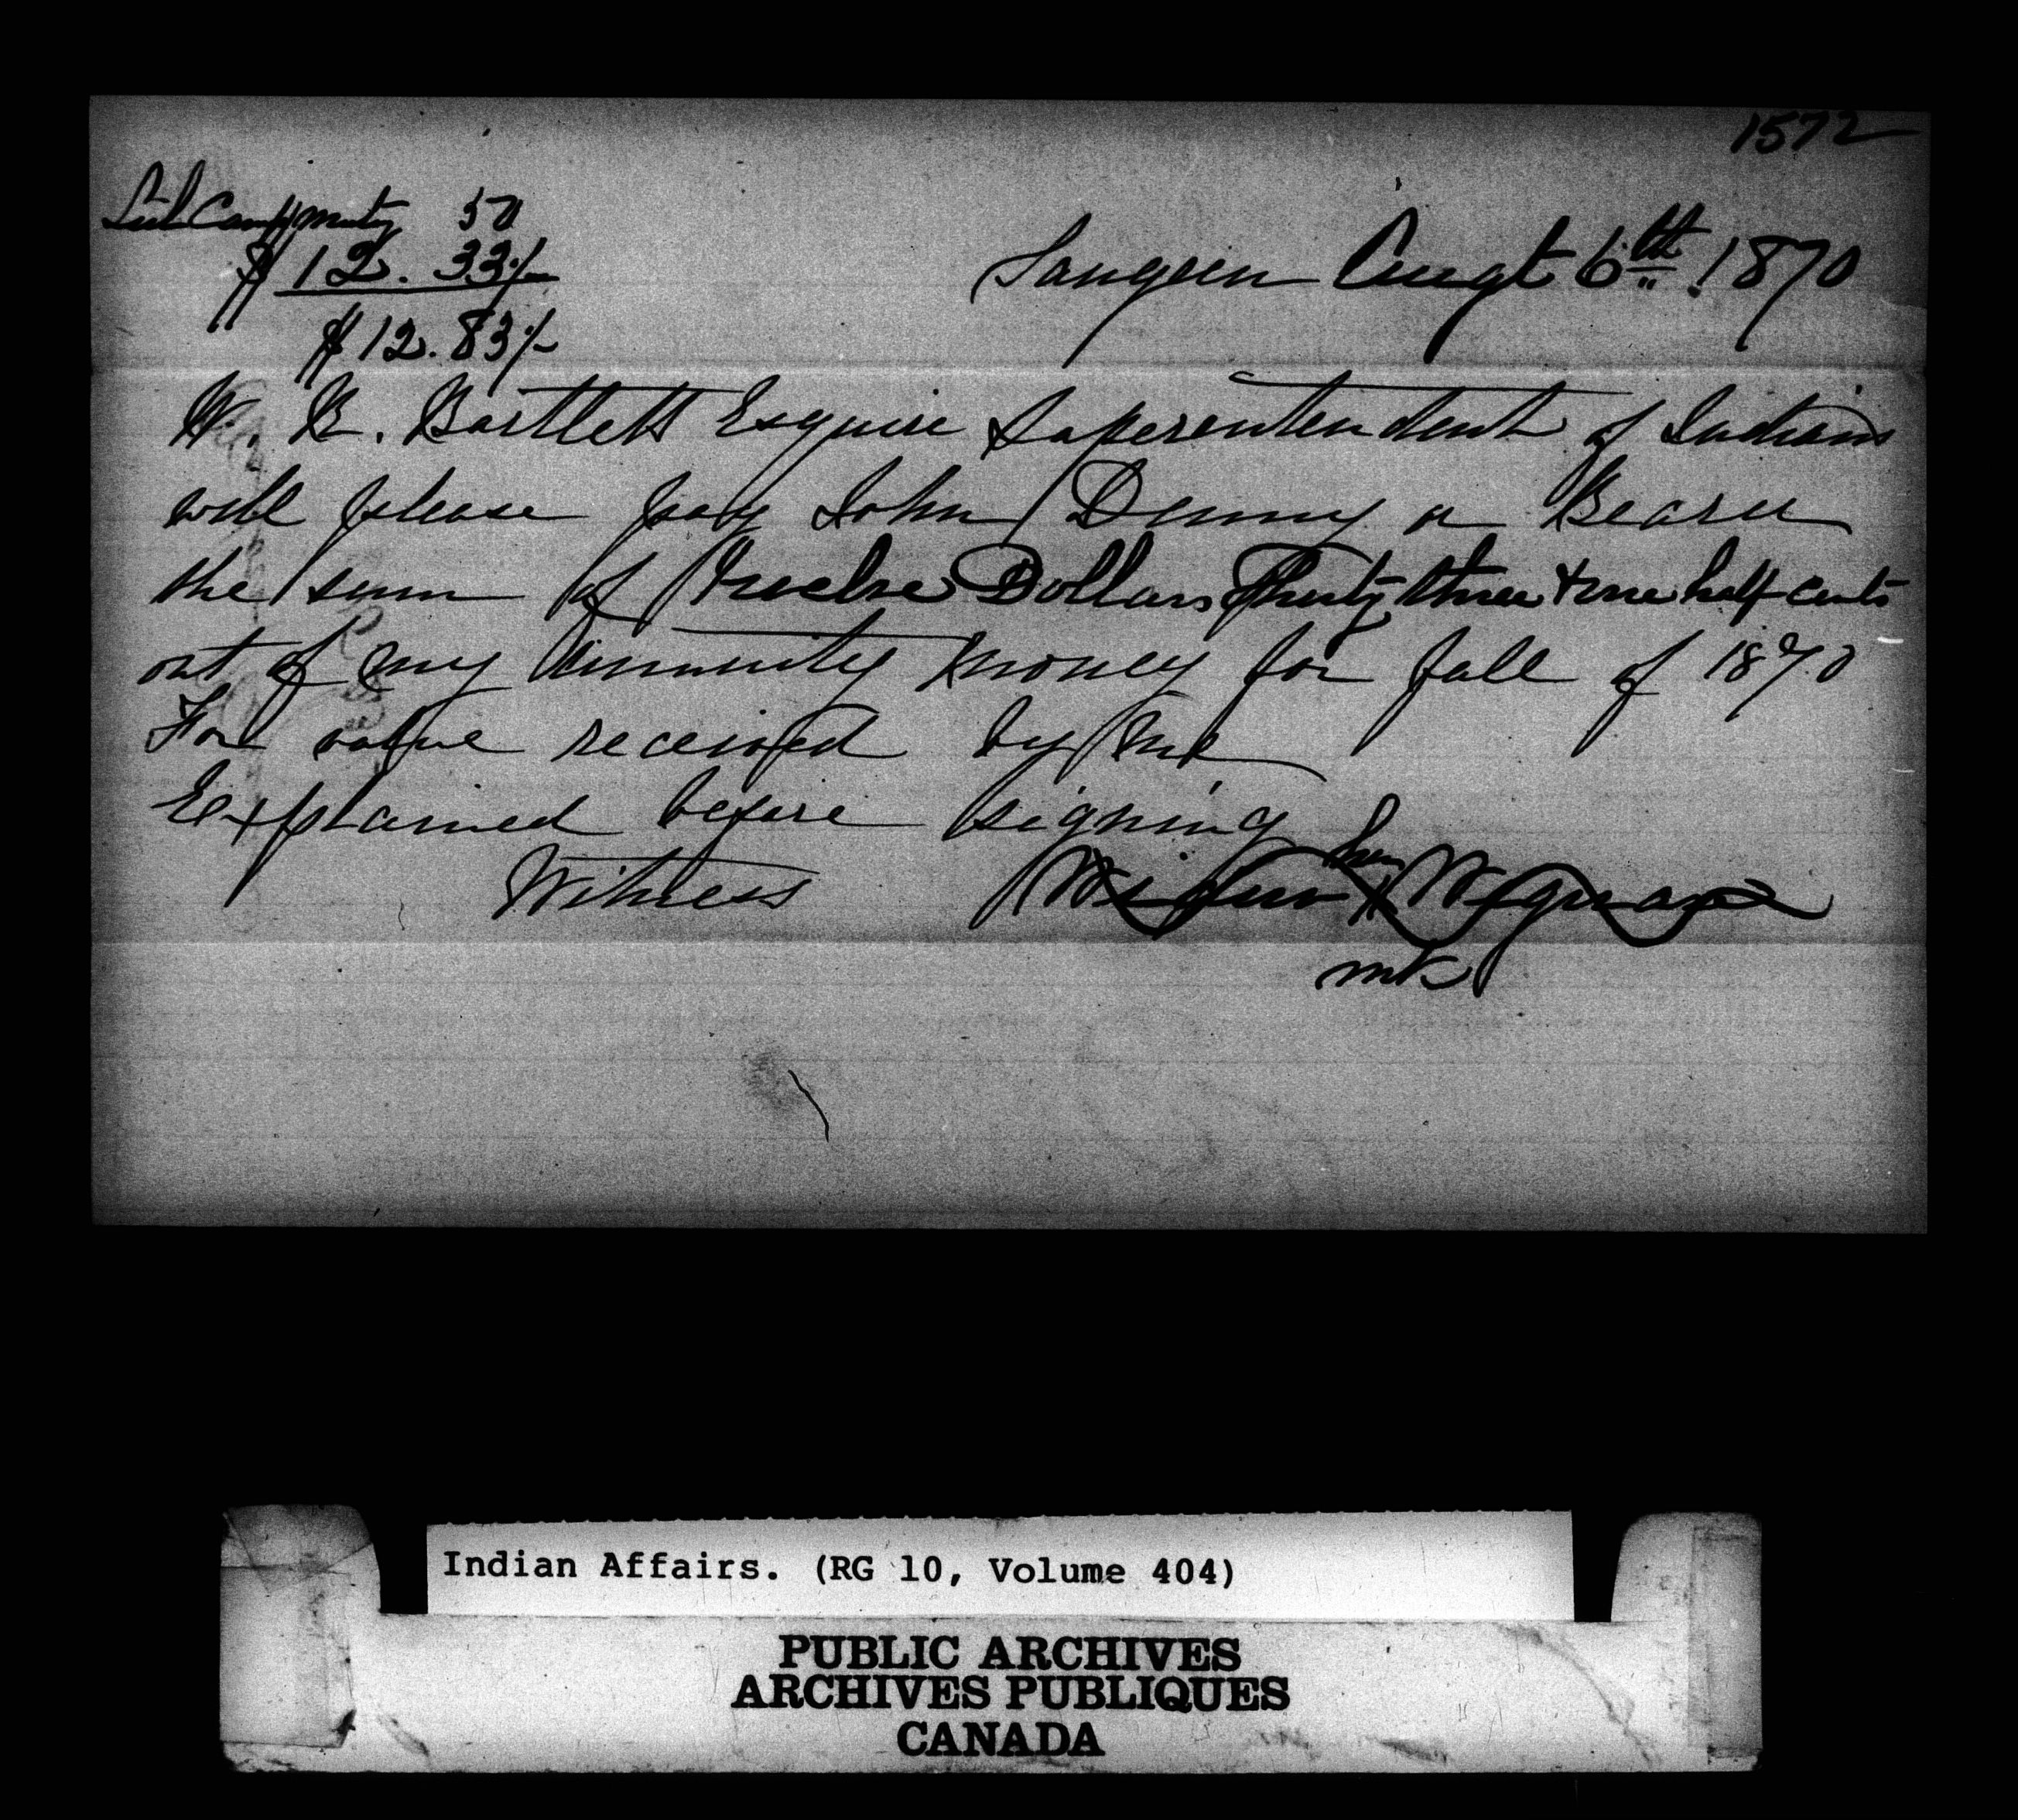 1572
50
$12.33½
$12.83½
Saugeen Augt 6th 1870
W. R. Bartlett Esquire Superentendent of Indians
will please pay John Denny or Bearer
the sum of Twelve Dollars Thirty three & one half cents
out of my Annuity money for fall of 1870
For value received by me
Explained before signing
her
Witness Widow X Wequas
mk
Indian Affairs. (RG 10, Volume 404)
PUBLIC ARCHIVES
ARCHIVES PUBLIQUES
CANADA